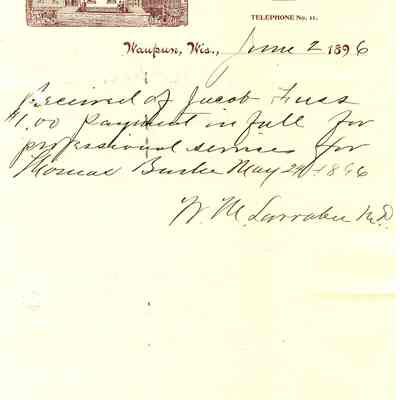 TELEPHONE No. 11.
Waupun, Wis., June 2 1896
Received of Jacob Fuss
$1.00 payment in full for
professional services for
Thomas Burke May 29 1896
W. M. Larrabee M.D.